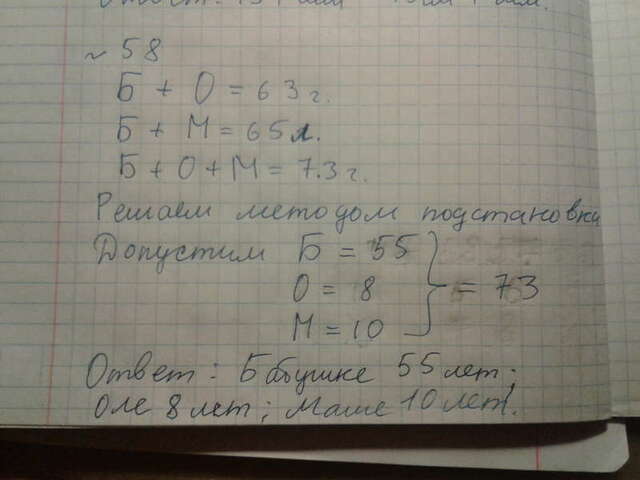 ~ 58
Б + О = 63 г.
Б + М = 65 л.
Б + О + М = 73 г.
Решаем методом подстановки
Допустим Б = 55
О = 8 } = 73
М = 10
Ответ: Бабушке 55 лет;
Оле 8 лет; Маше 10 лет!